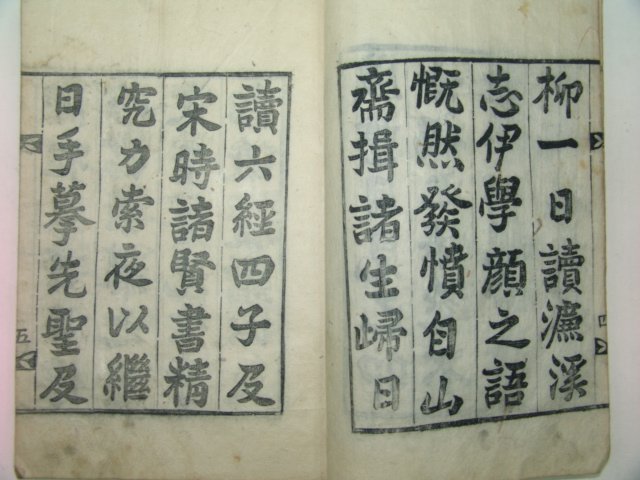 柳一日讀濂溪
志伊學顔之語
慨然發憤自山
齋揖諸生歸日
讀六經四子及
宋時諸賢書精
究力索夜以繼
日手摹先聖及
四
五